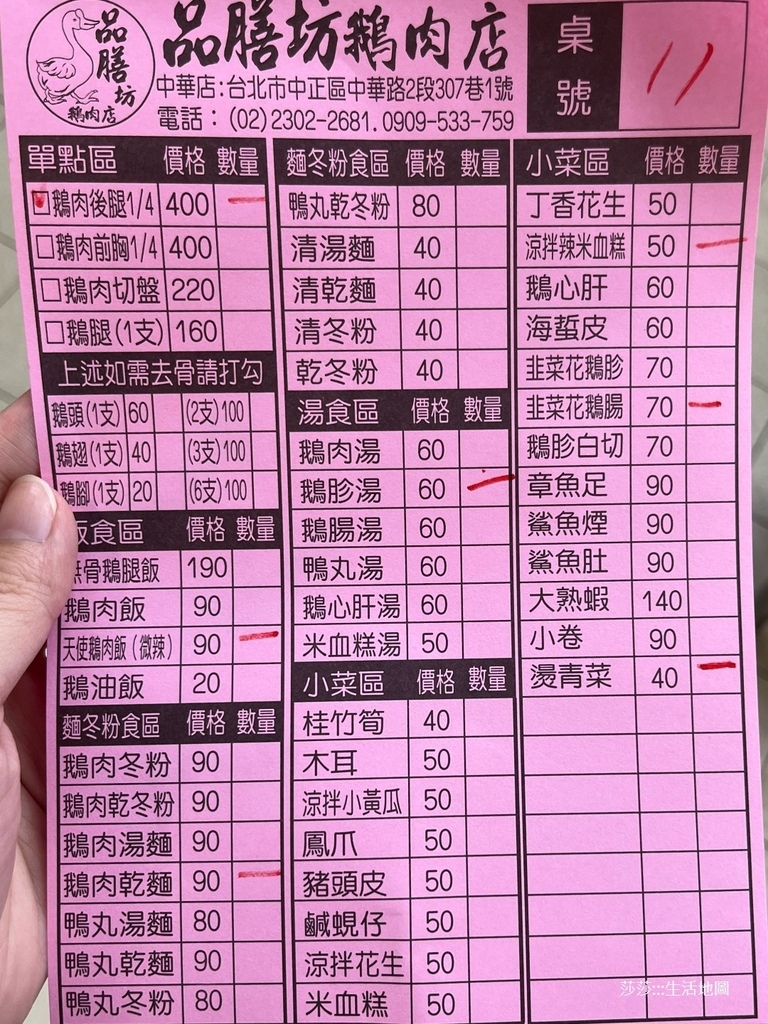 品膳坊
鵝肉店
品膳坊鵝肉店
中華店:台北市中正區中華路2段307巷1號
電話：(02)2302-2681.0909-533-759
桌號 11
單點區 價格 數量
☑鵝肉後腿1/4 400 一
□鵝肉前胸1/4 400
□鵝肉切盤 220
□鵝腿(1支) 160
上述如需去骨請打勾
鵝頭(1支) 60 (2支)100
鵝翅(1支) 40 (3支)100
鵝腳(1支) 20 (6支)100
飯食區 價格 數量
無骨鵝腿飯 190
鵝肉飯 90
天使鵝肉飯(微辣) 90 一
鵝油飯 20
麵冬粉食區 價格 數量
鵝肉冬粉 90
鵝肉乾冬粉 90
鵝肉湯麵 90
鵝肉乾麵 90 一
鴨丸湯麵 80
鴨丸乾麵 90
鴨丸冬粉 80
麵冬粉食區 價格 數量
鴨丸乾冬粉 80
清湯麵 40
清乾麵 40
清冬粉 40
乾冬粉 40
湯食區 價格 數量
鵝肉湯 60
鵝胗湯 60 一
鵝腸湯 60
鴨丸湯 60
鵝心肝湯 60
米血糕湯 50
小菜區 價格 數量
桂竹筍 40
木耳 50
涼拌小黃瓜 50
鳳爪 50
豬頭皮 50
鹹蜆仔 50
涼拌花生 50
米血糕 50
小菜區 價格 數量
丁香花生 50
涼拌辣米血糕 50 一
鵝心肝 60
海蜇皮 60
韭菜花鵝胗 70
韭菜花鵝腸 70 一
鵝胗白切 70
章魚足 90
鯊魚煙 90
鯊魚肚 90
大熟蝦 140
小卷 90
燙青菜 40 一
莎莎:::生活地圖